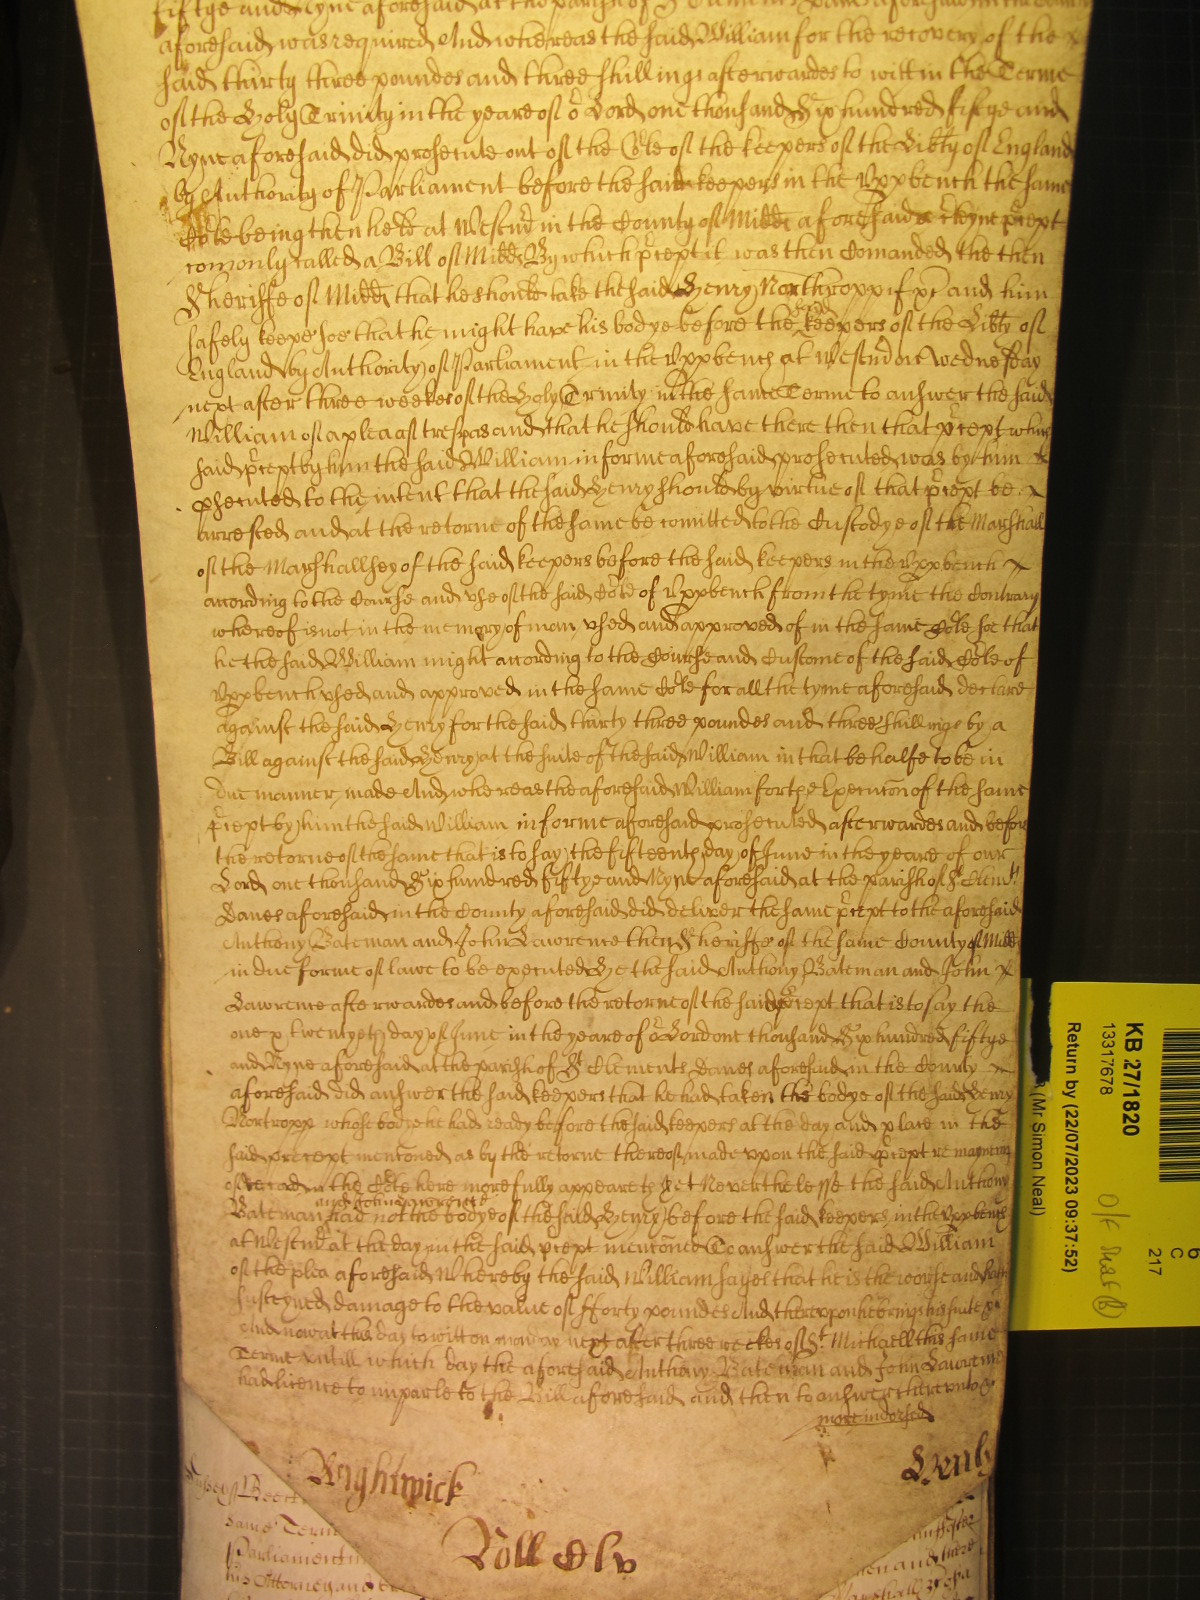 fiftye and Nyne aforesaid at the parish of St Clements Danes aforesaid in the County
aforesaid was required And whereas the said William for the recovery of the
said thirty three poundes and three shillings afterwardes to witt in the Terme
of the Holy Trinity in the yeare of or Lord one thousand Six hundred fiftye and
Nyne aforesaid did prosecute out of the Cote of the keepers of the Libty of England
by Authority of Parliament before the said keepers in the Vppbench the same
Cote being then held at Westmd in the County of Midd aforesaid a cteyne prcept
comonly called a Bill of Midd By which prcept it was then Comanded the then
Sheriffe of Midd that he should take the said Henry Northropp if &c and him
safely keepe soe that he might have his bodye before the said keepers of the Libty of
England by Authority of Parliament in the Vppbench at Westmd on Wednesday
next after three weekes of the Holy Trinity in the same Terme to answer the said
William of a plea of trespas and that he should have there then that prcept which
said prcept by him the said William in forme aforesaid prosecuted was by him
psecuted to the intent that the said Henry should by virtue of that prcept be
arrested and at the retorne of the same be comitted to the Custodye of the Marshall
of the Marshallsey of the said keepers before the said keepers in the Vppbench
according to the Course and vse of the said Cote of Vppbench from the tyme the Contrary
whereof is not in the memory of man vsed and approved of in the same Cote soe that
he the said William might according to the Course and Custome of the said Cote of
Vppbench vsed and approved in the same Cote for all the tyme aforesaid declare
against the said Henry for the said thirty three poundes and three shillings by a
Bill against the said Henry at the suite of the said William in that behalfe to be in
due manner made And whereas the aforesaid William for the Execucon of the same
prcept by him the said William in forme aforesaid prosecuted afterwardes and before
the retorne of the same that is to say the fifteenth day of June in the yeare of our
Lord one thousand Six hundred fiftye and Nyne aforesaid at the parish of St Clemts
Danes aforesaid in the County aforesaid did deliver the same prcept to the aforesaid
Anthony Bateman and John Lawrence then Sheriffe of the same County of Midd
in due forme of lawe to be executed He the said Anthony Bateman and John
Lawrence afterwardes and before the retorne of the said prcept that is to say the
one & twentyeth day of June in the yeare of or Lord one thousand Six hundred fiftye
and Nyne aforesaid at the parish of St Clements Danes aforesaid in the County
aforesaid did answer the said keepers that he had taken the bodye of the said Henry
Nortropp whose bodye he had ready before the said keepers at the day and place in the
said precept mentoned as by the retorne thereof made vpon the said prcept remayneing
of record in the Cote here more fully appeareth Yet Neverthelesse the said Anthony
and John Lawrence
Bateman had not the bodye of the said Henry before the said keepers in the Vppbench
at Westmd at the day in the said prcept mentoned To answer the said William
of the plea aforesaid Whereby the said William sayes that he is the worse and hath
susteyned damage to the value of fforty poundes And therevpon he brings his suite &c
And now at this day to witt on munday next after three weekes of St Michaell this same
Terme vntill which day the aforesaid Anthony Bateman and John Lawrence
had licence to imparle to the Bill aforesaid and then to answer therevnto &c
more indorsed
Rightwick
Henly
Roll Clv
same Term
Parliament
his Attorney and
KB 27/1820
13317678
Return by (22/07/2023 09:37:52)
(Mr Simon Neal)
6
C
217